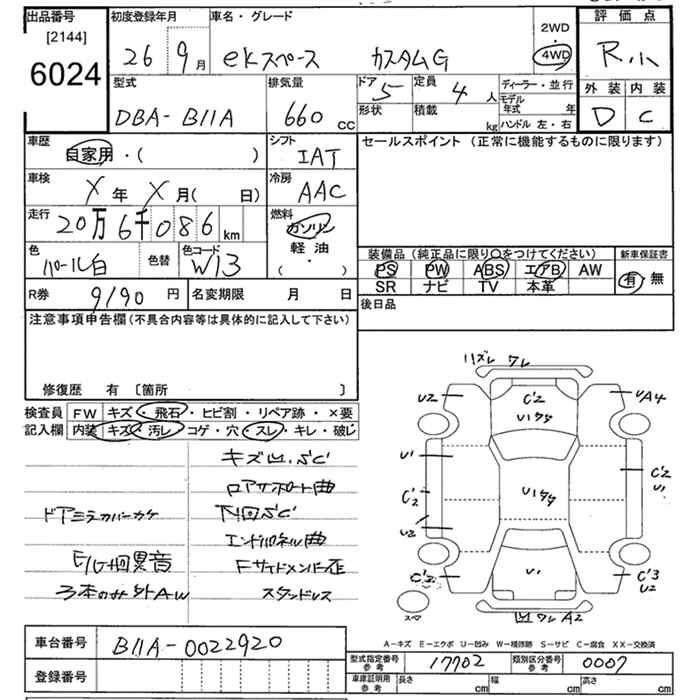 出品番号
[2144]
6024
初度登録年月
26 9月
車名・グレード
eKスペース カスタムG
2WD
・
4WD
評価点
R.小
外装 内装
D C
型式
DBA-B11A
排気量
660 CC
ドア
5
定員
4 人
形状
積載
kg
ディーラー・並行
モデル年式 年
ハンドル 左・右
車歴
自家用・( )
シフト
IAT
セールスポイント (正常に機能するものに限ります)
車検
X 年 X 月( 日)
冷房
AAC
走行
20万6千086 km
燃料
ガソリン
軽油
( ・ )
色
パール白
色替
色コード
W13
装備品 (純正品に限り○をつけてください)
新車保証書
PS PW ABS エアB AW
有・無
SR ナビ TV 本革
R券
9190 円
名変期限 月 日
後日品
注意事項申告欄(不具合内容等は具体的に記入して下さい)
修復歴 有 〔箇所 〕
検査員
記入欄
FW キズ・飛石・ヒビ割・リペア跡・×要
内装 キズ・汚レ・コゲ・穴・スレ・キレ・破レ
キズ凹.SC
コアサポート曲
ドアミラーカバーカケ
下回SC
エンドパネル曲
E/G廻異音
Fサイドメンバー歪
3本のみ外AW
スタッドレス
ハズレ ワレ
U2
C'2
U1ワク
UA4
U1
C'2
U2
U1ワク
C'2
U1
C'2
U1
C'3
U2
スペア
凹ワレ A2
A-キズ E-エクボ U-凹み W-補修跡 S-サビ C-腐食 XX-交換済
車台番号
B11A-0022920
登録番号
型式指定番号
参考
17702
類別区分番号
参考
0007
車庫証明用
参考
長さ cm
幅 cm
高さ cm